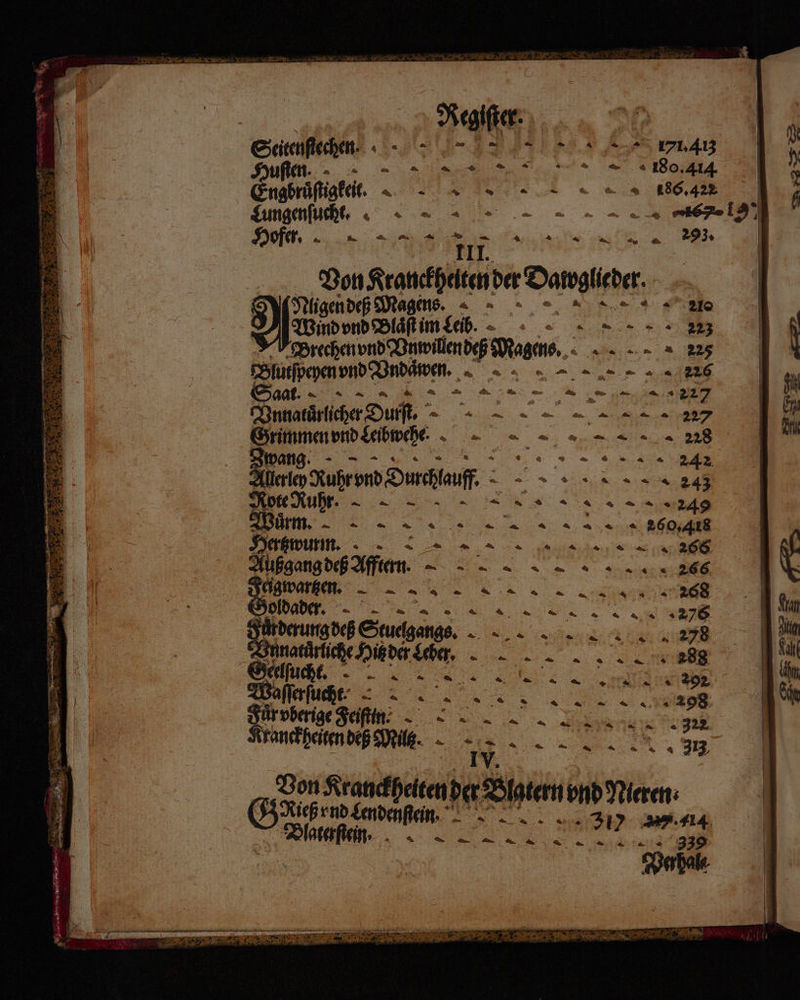 Regiſter.
Seitenſtechen. 171.413
Huſten. 180.414
Engbrůſtigkeit. 186.422
Lungenſucht. 167 19
Hofer. 293.
III.
Von Kranckheiten der Dawglieder.
Nligen deß Magens. 210
Wind vnd Blåſt im Leib. 223
Brechen vnd Vnwillen deß Magens. 225
Blutſpeyen vnd Vndåwen. 226
Saat. 227
Vnnatůrlicher Durſt. 227
Grimmen vnd Leibwehe. 228
Zwang. 242
Allerley Ruhr vnd Durchlauff. 243
Rote Ruhr. 249
Wůrm. 260.418
Hertzwurm. 266
Außgang deß Afftern. 266
Feigwartzen. 268
Goldader. 276
Fůrderung deß Stuelgangs. 278
Vnnatůrliche Hitz der Leber. 288
Geelſucht. 292
Waſſerſucht. 298
Fůr vberige Feiſtin. 322
Kranckheiten deß Miltz. 313
IV.
Von Kranckheiten der Blatern vnd Nieren.
GRieß vnd Lendenſtein. 317 414
Blaterſtein. 339
Verhal⸗